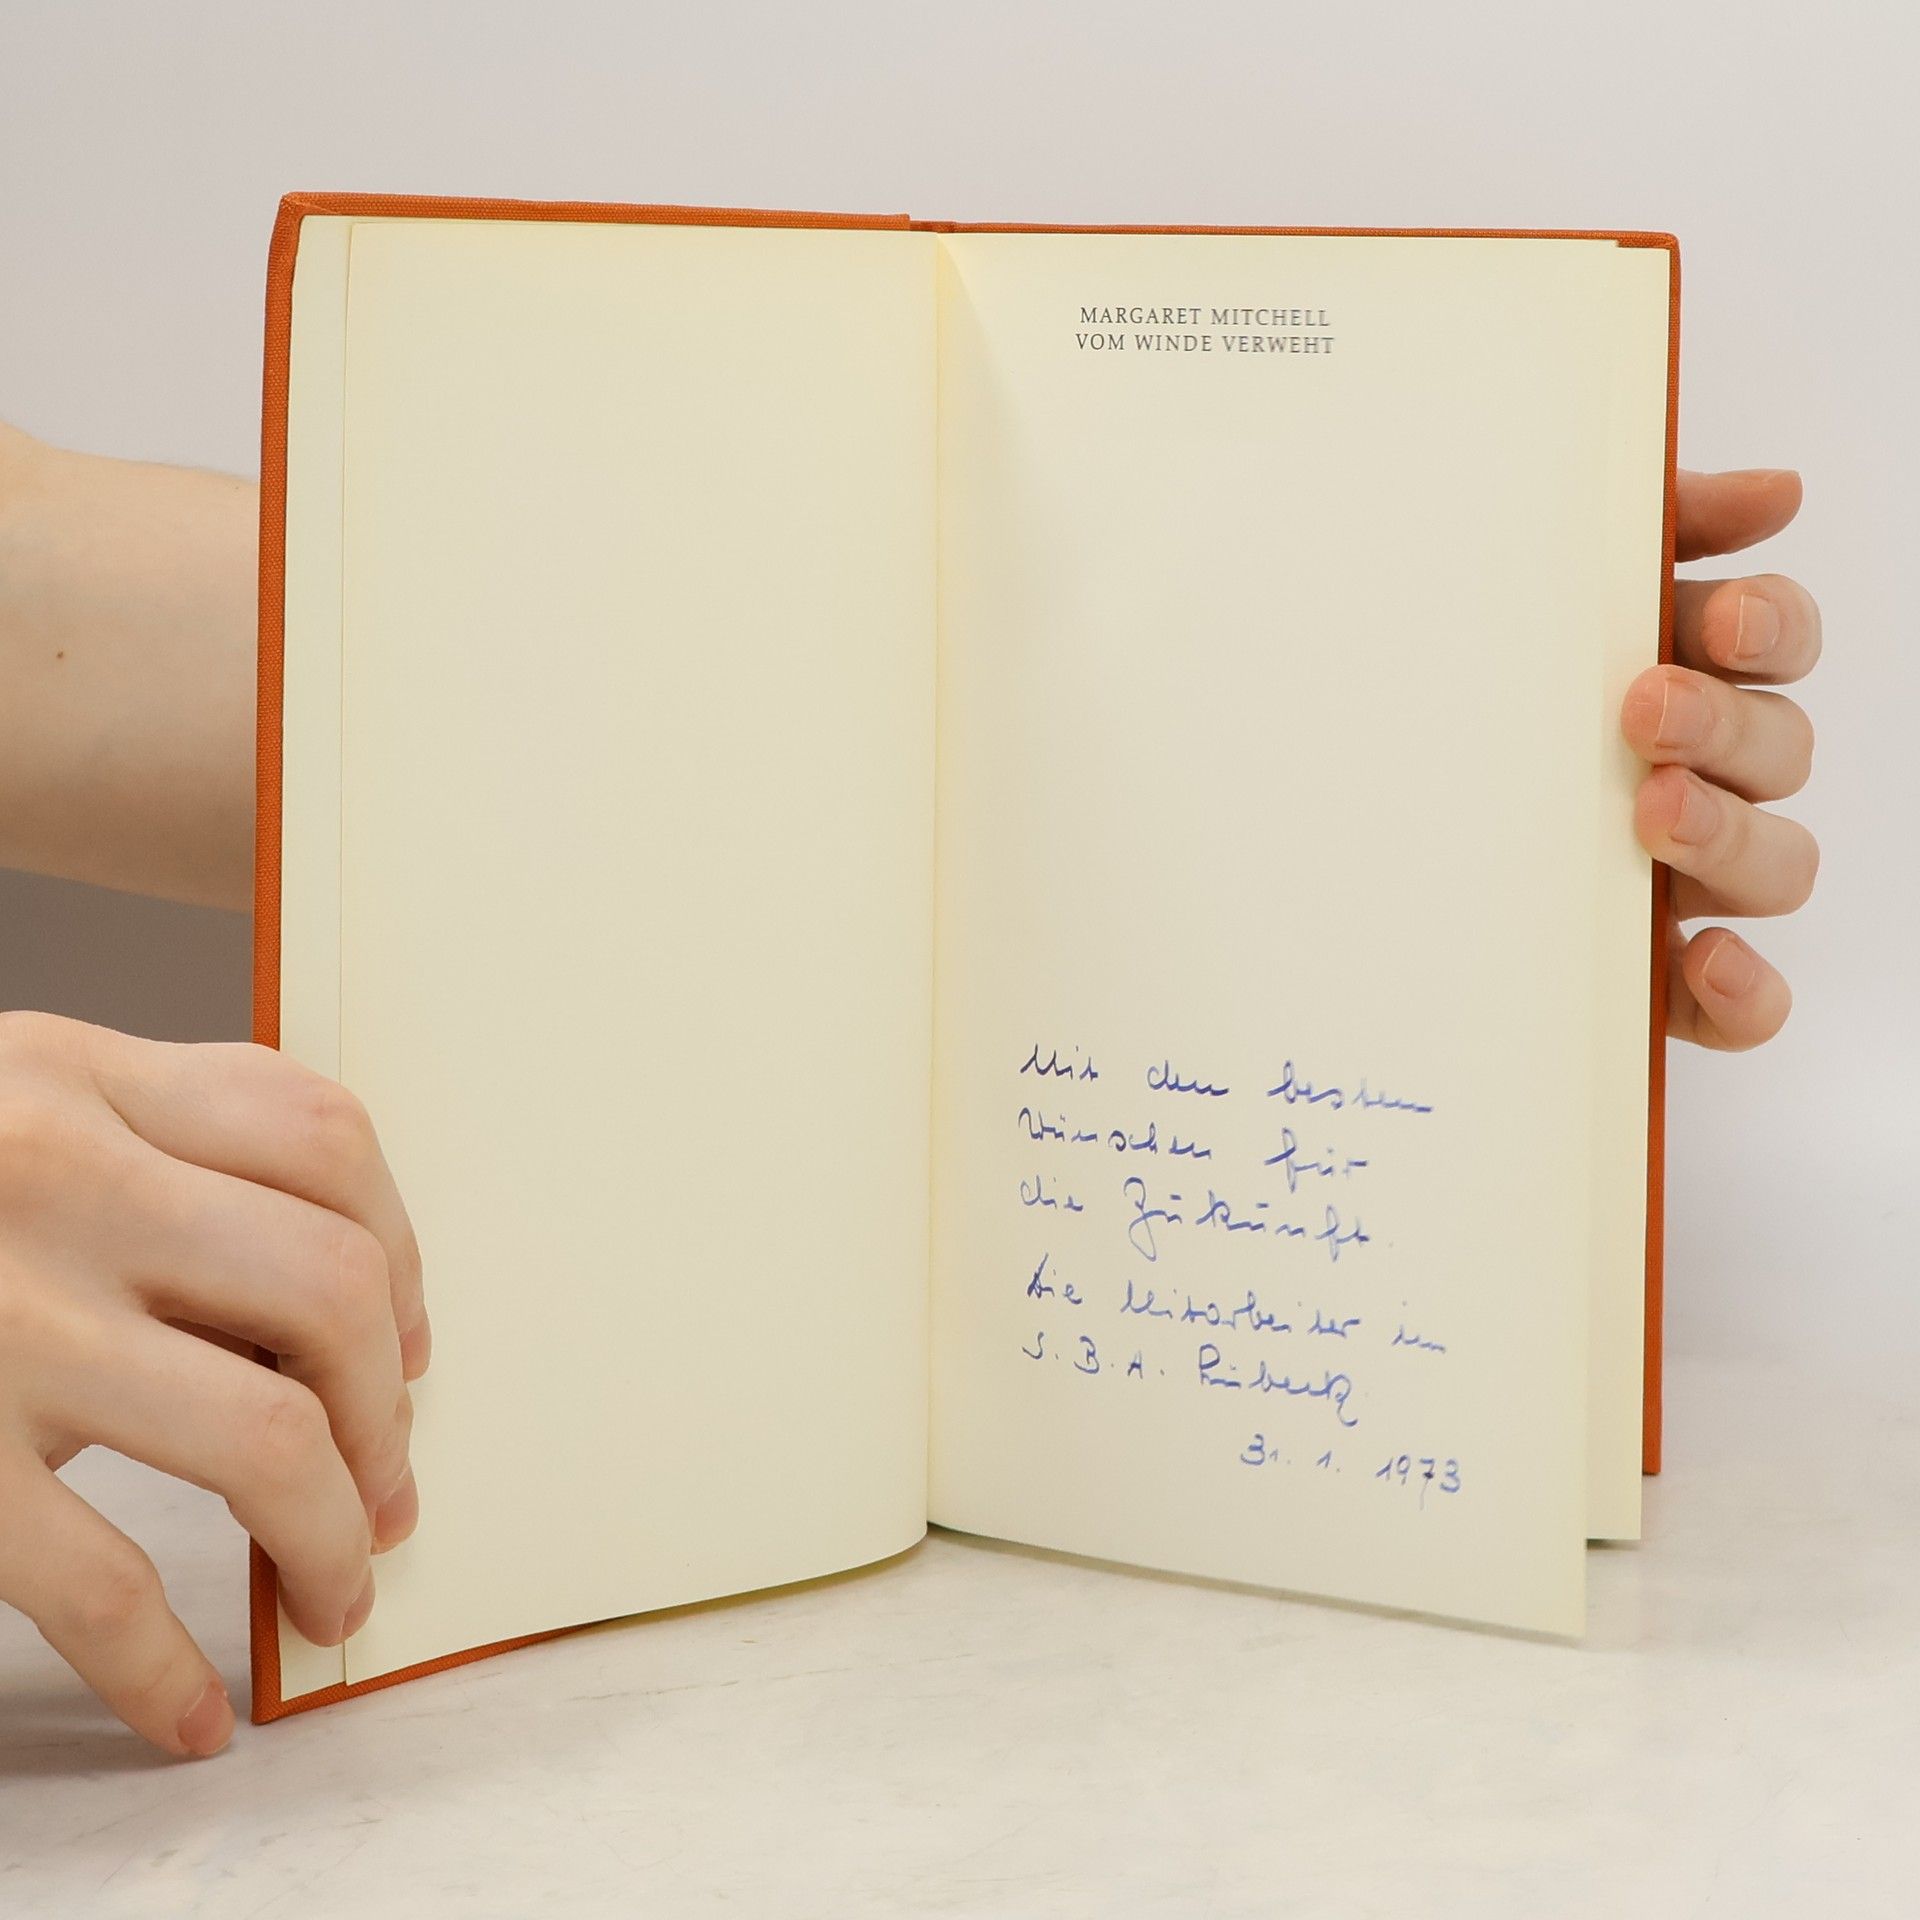 MARGARET MITCHELL
VOM WINDE VERWEHT
Mit den besten
Wünschen für
die Zukunft.
Die Mitarbeiter im
S. B. A. Lübeck
31. 1. 1973